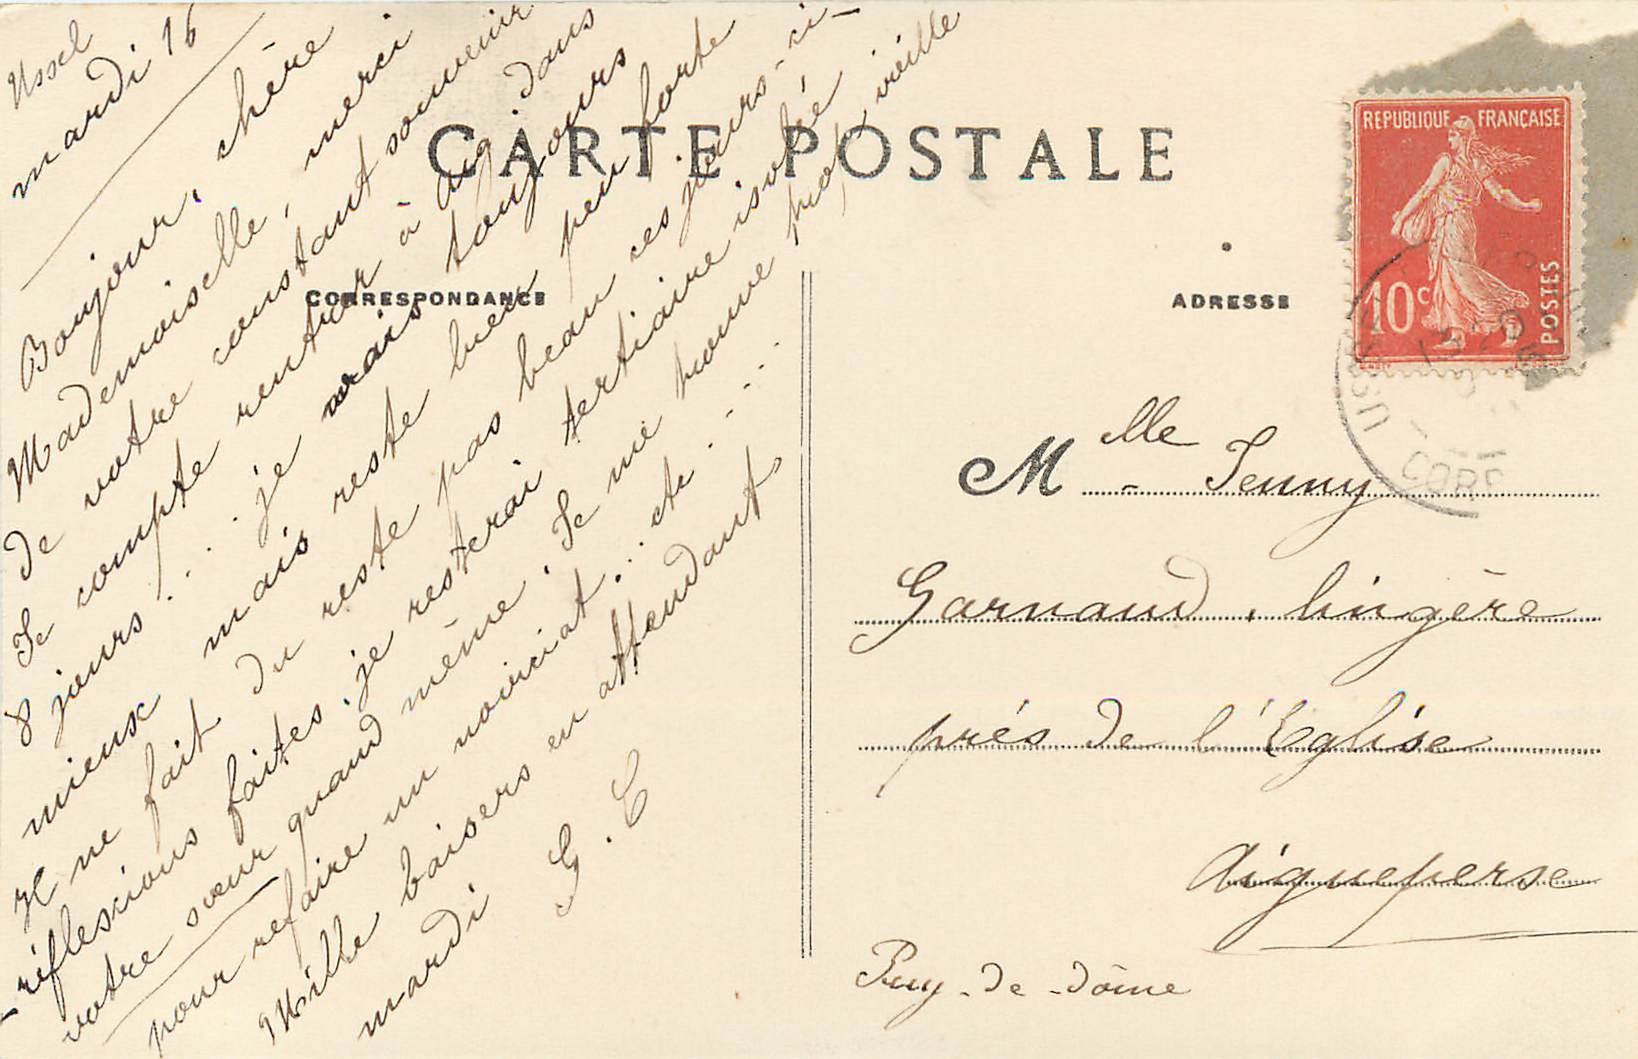 Ussel
mardi 16
Bonjour, chère
Mademoiselle, merci
de votre constant souvenir
Je compte rentrer à Aig. dans
8 jours... je vais toujours
mieux mais reste bien peu forte
Il ne fait du reste pas beau ces jours-ci -
réflexions faites, je resterai tertiaire isolée
votre sœur quand même, Je me trouve trop vieille
pour refaire un noviciat... etc....
Mille baisers en attendant.
mardi G. C
CARTE POSTALE
CORRESPONDANCE
ADRESSE
REPUBLIQUE FRANÇAISE
10c
POSTES
USSEL
CORR
Mlle - Jenny
Garnaud, lingère
prés de l'Eglise
Aigueperse
Puy-de-dôme